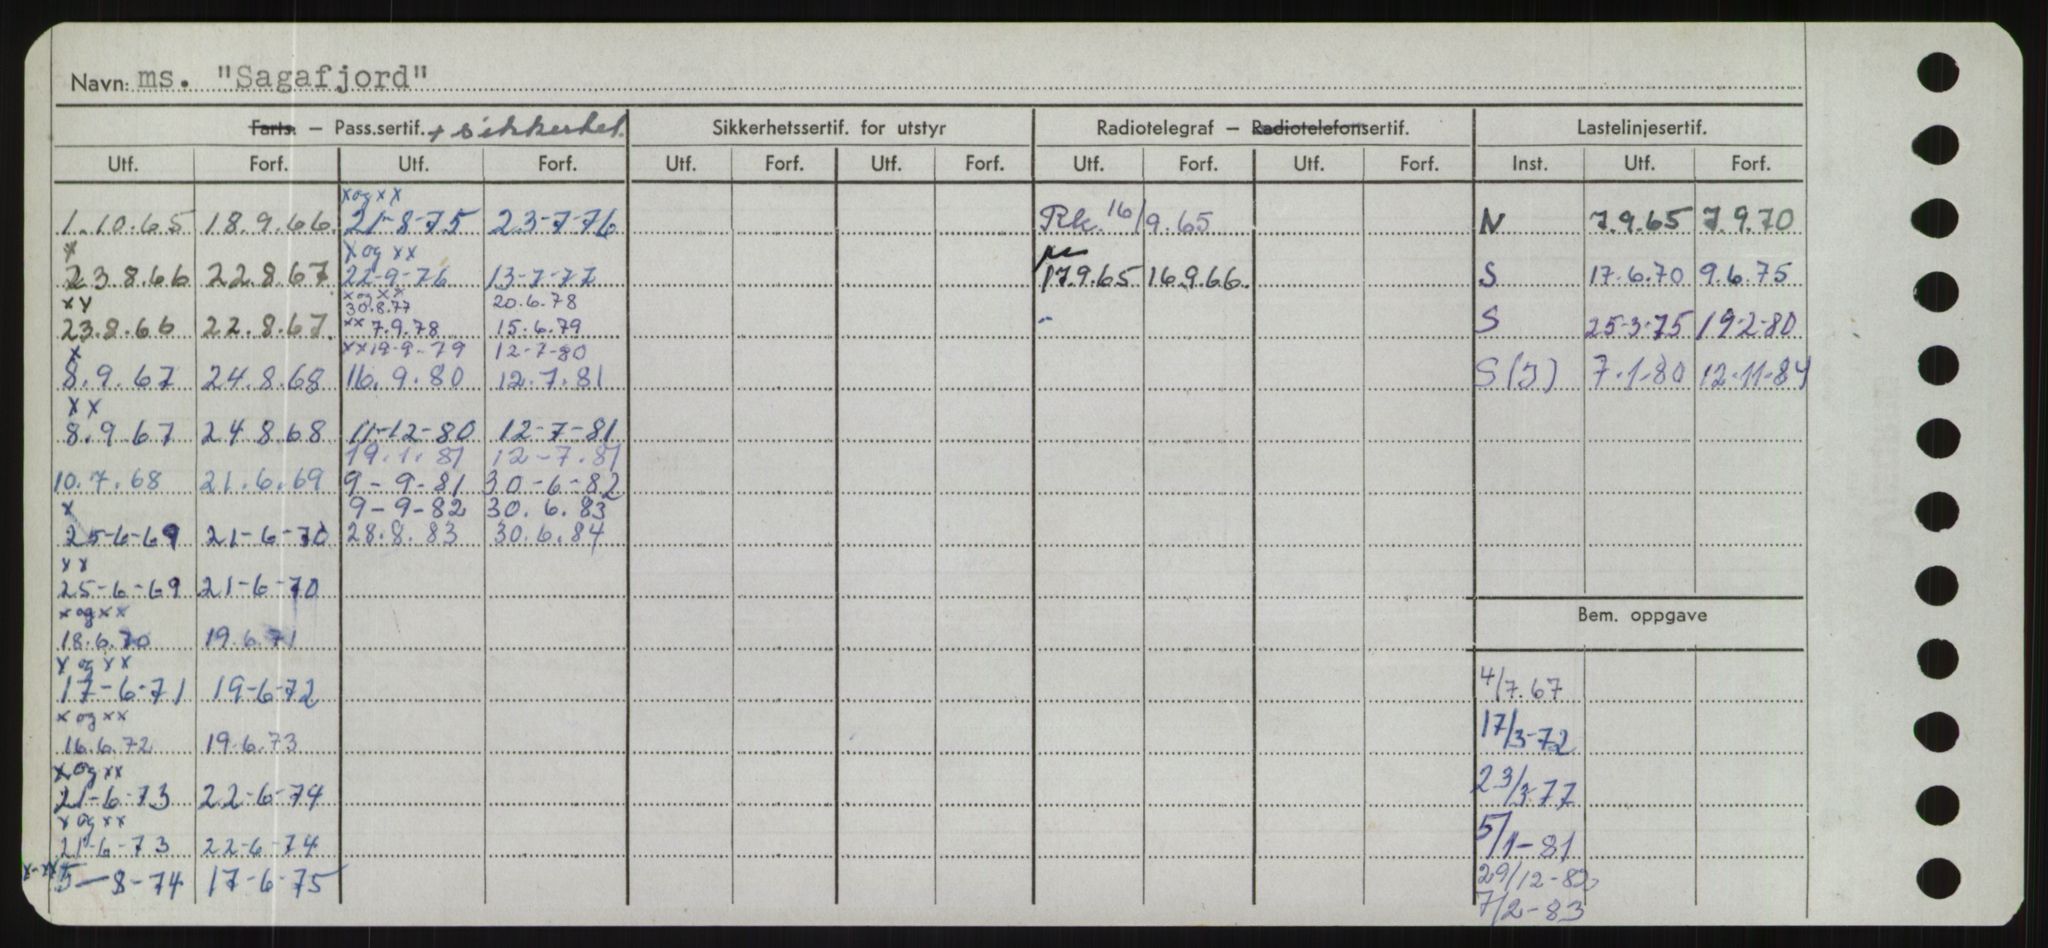 Navn: ms. "Sagafjord"
Farts. – Pass.sertif. + sikkerhet. Sikkerhetssertif. for utstyr Radiotelegraf – Radiotelefonsertif. Lastelinjesertif.
Utf. Forf. Utf. Forf. Utf. Forf. Utf. Forf. Utf. Forf. Utf. Forf. Inst. Utf. Forf.
x og xx
1.10.65 18.9.66 21-8-75 23-7-76 Rk. 16/9.65 N 7.9.65 7.9.70
x x og xx
23.8.66 22.8.67 22-9-76 13-7-77 17.9.65 16.9.66 S 17.6.70 9.6.75
xx x og xx
30.8.77 20.6.78
23.8.66 22.8.67 xx 7.9.78 15.6.79 - S 25-3-75 19-2-80
x xx 19-9-79 12-7-80
8.9.67 24.8.68 16.9.80 12.7.81 S(J) 7-1-80 12-11-84
xx
8.9.67 24.8.68 11-12-80 12-7-81
19.1.81 12-7.81
10.7.68 21.6.69 9-9-81 30-6-82
x 9-9-82 30.6.83
25-6-69 21-6-70 28.8.83 30.6.84
xx
25-6-69 21-6-70
x og xx
Bem. oppgave
18.6.70 19.6.71
x og xx
17-6-71 19-6-72 4/7.67
x og xx
16.6.72 19.6.73 17/3-72
x og xx
21-6-73 22-6-74 23/3-77
x og xx
21-6-73 22-6-74 5/1-81
x-xx 5-8-74 17-6-75 29/12-82
7/2-83